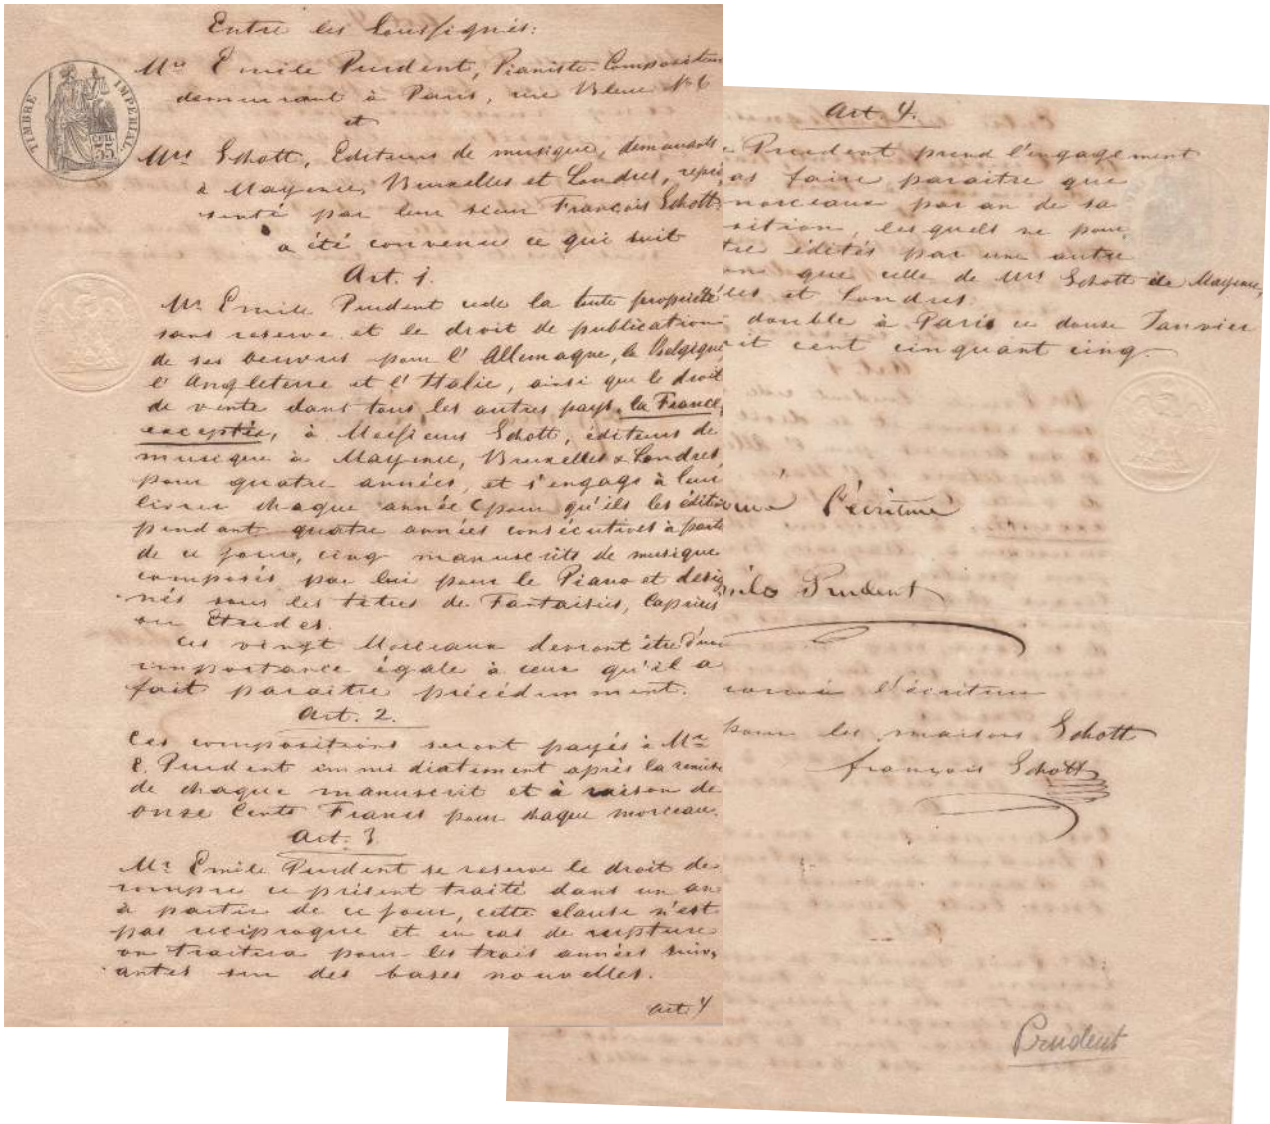 Entre les Soussignés:
TIMBRE IMPERIAL
35
Mr Emile Prudent, Pianiste-Compositeur
demeurant à Paris, rue Bleue No 6
et
Mrs Schott, Editeurs de musique, demeurants
à Mayence, Bruxelles et Londres, repré
senté par leur sieur François Schott.
a été convenu ce qui suit
Art. 1.
Mr Emile Prudent cède la toute propriété
sans reserve et le droit de publication
de ses oeuvres pour l'Allemagne, la Belgique
l'Angleterre et l'Italie, ainsi que le droit
de vente dans tous les autres pays, la France,
exceptée, à Messieurs Schott, éditeurs de
musique à Mayence, Bruxelles & Londres
pour quatre années, et s'engage à leur
livrer chaque année (pour qu'ils les éditer
pendant quatre années consécutives à partir
de ce jour, cinq manuscrits de musique
composés par lui pour le Piano et desig
nés sous les titres de Fantaisies, Caprices
ou Etudes.
Ces vingt Morceaux devront être d'une
importance égale à ceux qu'il a
fait paraitre précédemment.
Art. 2.
Ces compositions seront payés à Mr
E. Prudent immédiatement après la remise
de chaque manuscrit et à raison de
onze Cents Francs pour chaque morceau.
Art. 3.
Mr Emile Prudent se reserve le droit de
rompre ce présent traité dans un an
à partir de ce jour, cette clause n'est
pas reciproque et en cas de rupture
on traitera pour les trois années suiv,
antes sur des bases nouvelles.
Art. 4
Art. 4.
Prudent prend l'engagement
as faire paraitre que
morceaux par an de sa
sition, lesquels ne pour,
tre édités par une autre
on que celle de Mrs Schott de Mayence,
les et Londres.
double à Paris ce douze Janvier
it cent cinquant cinq.
l'écriture
Prudent
l'écriture
pour les maisons Schott
françois Schott
Prudent